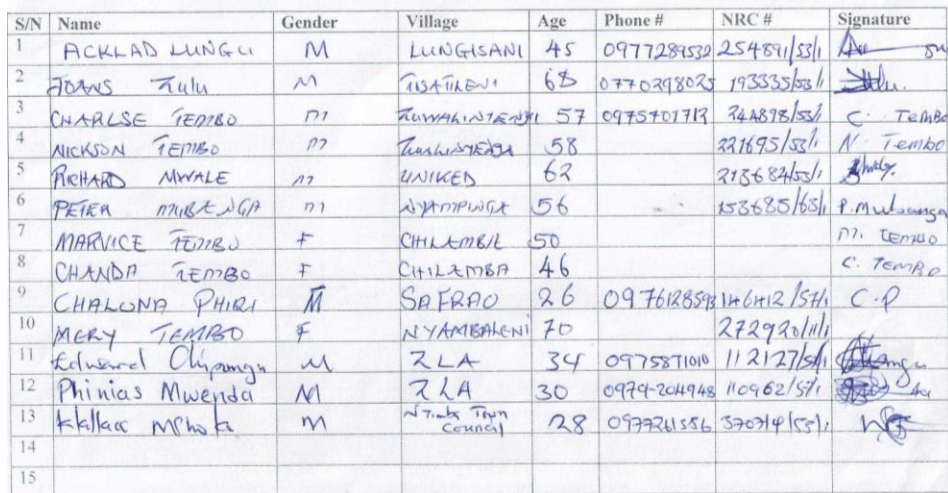 S/N Name Gender Village Age Phone # NRC # Signature
1 ACKLAD LUNGU M LUNGISANI 45 0977289532 254891/53/1
2 Zulu M 68 0770298025 193335/53/1
3 CHARLSE TEMBO M 57 0975701712 244898/53/1 C. TEMBO
4 NICKSON TEMBO M 58 221695/53/1 N. Tembo
5 RICHARD MWALE M UNIKED 62 213684/53/1
6 PETER M NYAMPINGA 56 153685/63/1
7 MARVICE TEMBO F 50 M. TEMBO
8 CHANDA TEMBO F CHILEMBA 46 C. TEMBO
9 CHALUNA PHIRI M SAFRAO 26 0976128593 146412/57/1 C.P
10 MERY TEMBO F NYAMBALENI 70 272920/11/1
11 Edward M ZLA 34 0975871010 112127/54/1
12 Phinias Mwenda M ZLA 30 0979-204948 110962/57/1
13 M Town Council 28 0977261586 370714/53/1
14
15